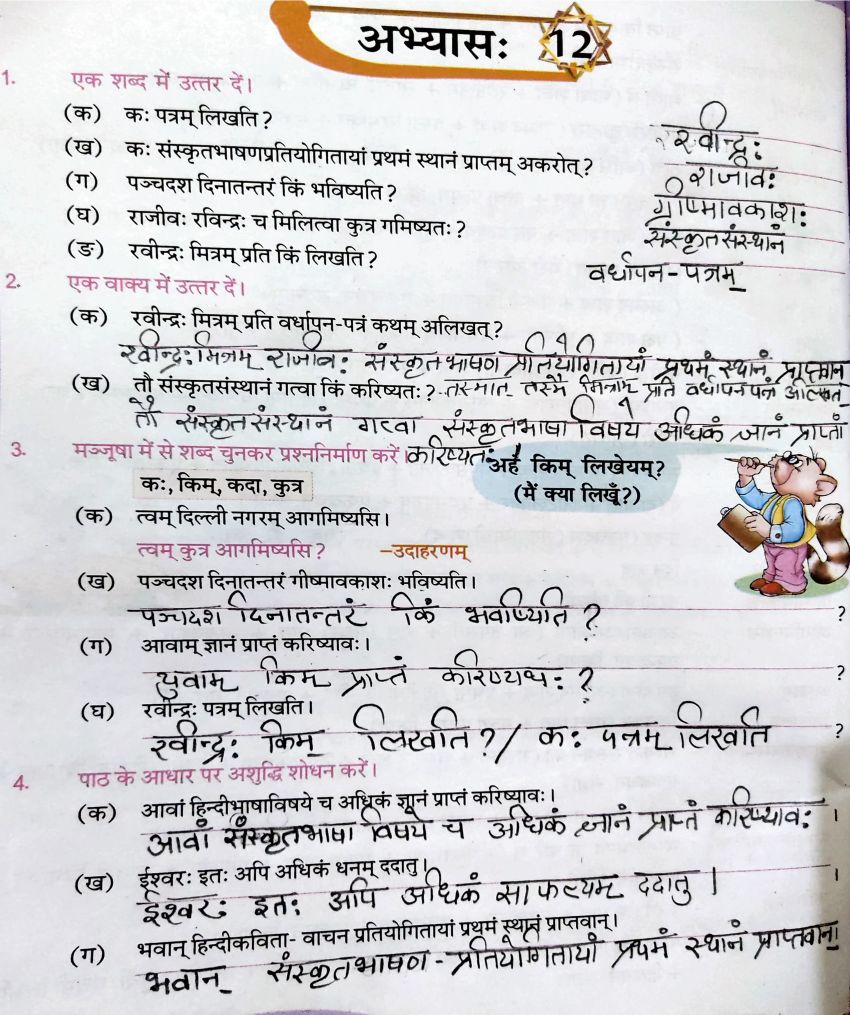 अभ्यासः 12
1. एक शब्द में उत्तर दें।
(क) कः पत्रम् लिखति?
रवीन्द्रः
(ख) कः संस्कृतभाषणप्रतियोगितायां प्रथमं स्थानं प्राप्तम् अकरोत्?
राजीवः
(ग) पञ्चदश दिनातन्तरं किं भविष्यति?
ग्रीष्मावकाशः
(घ) राजीवः रविन्द्रः च मिलित्वा कुत्र गमिष्यतः?
संस्कृतसंस्थानं
(ङ) रवीन्द्रः मित्रम् प्रति किं लिखति?
वर्धापन-पत्रम्
2. एक वाक्य में उत्तर दें।
(क) रवीन्द्रः मित्रम् प्रति वर्धापन-पत्रं कथम् अलिखत्?
रवीन्द्रः मित्रम् राजीवः संस्कृतभाषण प्रतियोगितायां प्रथमं स्थानं प्राप्तवान
(ख) तौ संस्कृतसंस्थानं गत्वा किं करिष्यतः? तस्मात् तस्मै मित्राम् प्रति वर्धापनपत्रं अलिखत्
तौ संस्कृतसंस्थानं गत्वा संस्कृतभाषा विषये अधिकं ज्ञानं प्राप्तां
करिष्यतः
3. मञ्जूषा में से शब्द चुनकर प्रश्ननिर्माण करें।
अहं किम् लिखेयम्?
(मैं क्या लिखूँ?)
कः, किम्, कदा, कुत्र
(क) त्वम् दिल्ली नगरम् आगमिष्यसि।
त्वम् कुत्र आगमिष्यसि? –उदाहरणम्
(ख) पञ्चदश दिनातन्तरं गीष्मावकाशः भविष्यति।
पञ्चदश दिनातन्तरं किं भविष्यति? ?
(ग) आवाम् ज्ञानं प्राप्तं करिष्यावः।
युवाम् किम् प्राप्तं करिष्यथः? ?
(घ) रवीन्द्रः पत्रम् लिखति।
रवीन्द्रः किम् लिखति?/ कः पत्रम् लिखति ?
4. पाठ के आधार पर अशुद्धि शोधन करें।
(क) आवां हिन्दीभाषाविषये च अधिकं ज्ञानं प्राप्तं करिष्यावः।
आवां संस्कृतभाषा विषये च अधिकं ज्ञानं प्राप्तं करिष्यावः ।
(ख) ईश्वरः इतः अपि अधिकं धनम् ददातु।
ईश्वरः इतः अपि अधिकं साफल्यम् ददातु। ।
(ग) भवान् हिन्दीकविता- वाचन प्रतियोगितायां प्रथमं स्थानं प्राप्तवान्।
भवान् संस्कृतभाषण-प्रतियोगितायां प्रथमं स्थानं प्राप्तवान्।